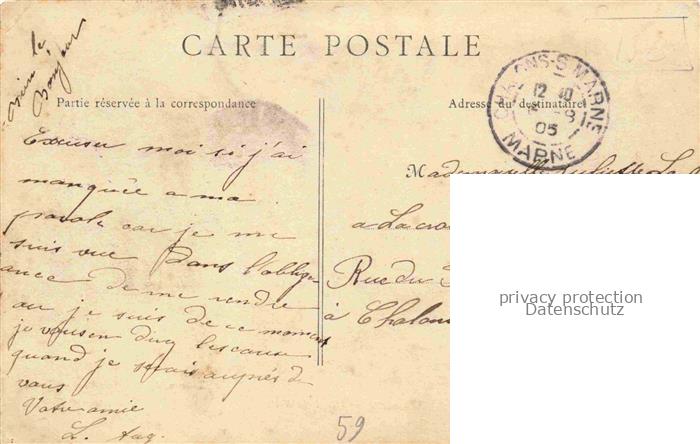 CARTE POSTALE
Partie réservée à la correspondance
Adresse du destinataire
CHALONS-S-MARNE
12 10
05
MARNE
Bonjour
Excuser moi si j'ai
manquée a ma
parole car je me
suis vue Dans l'oblige
ance de me rendre
ou je suis de ce moment
je vous en direz les cause
quand je serais auprés de
vous
Votre amie
L. Aug.
Mademoiselle Juliette
a La croi
Rue du
à Chalons
59
privacy protection
Datenschutz